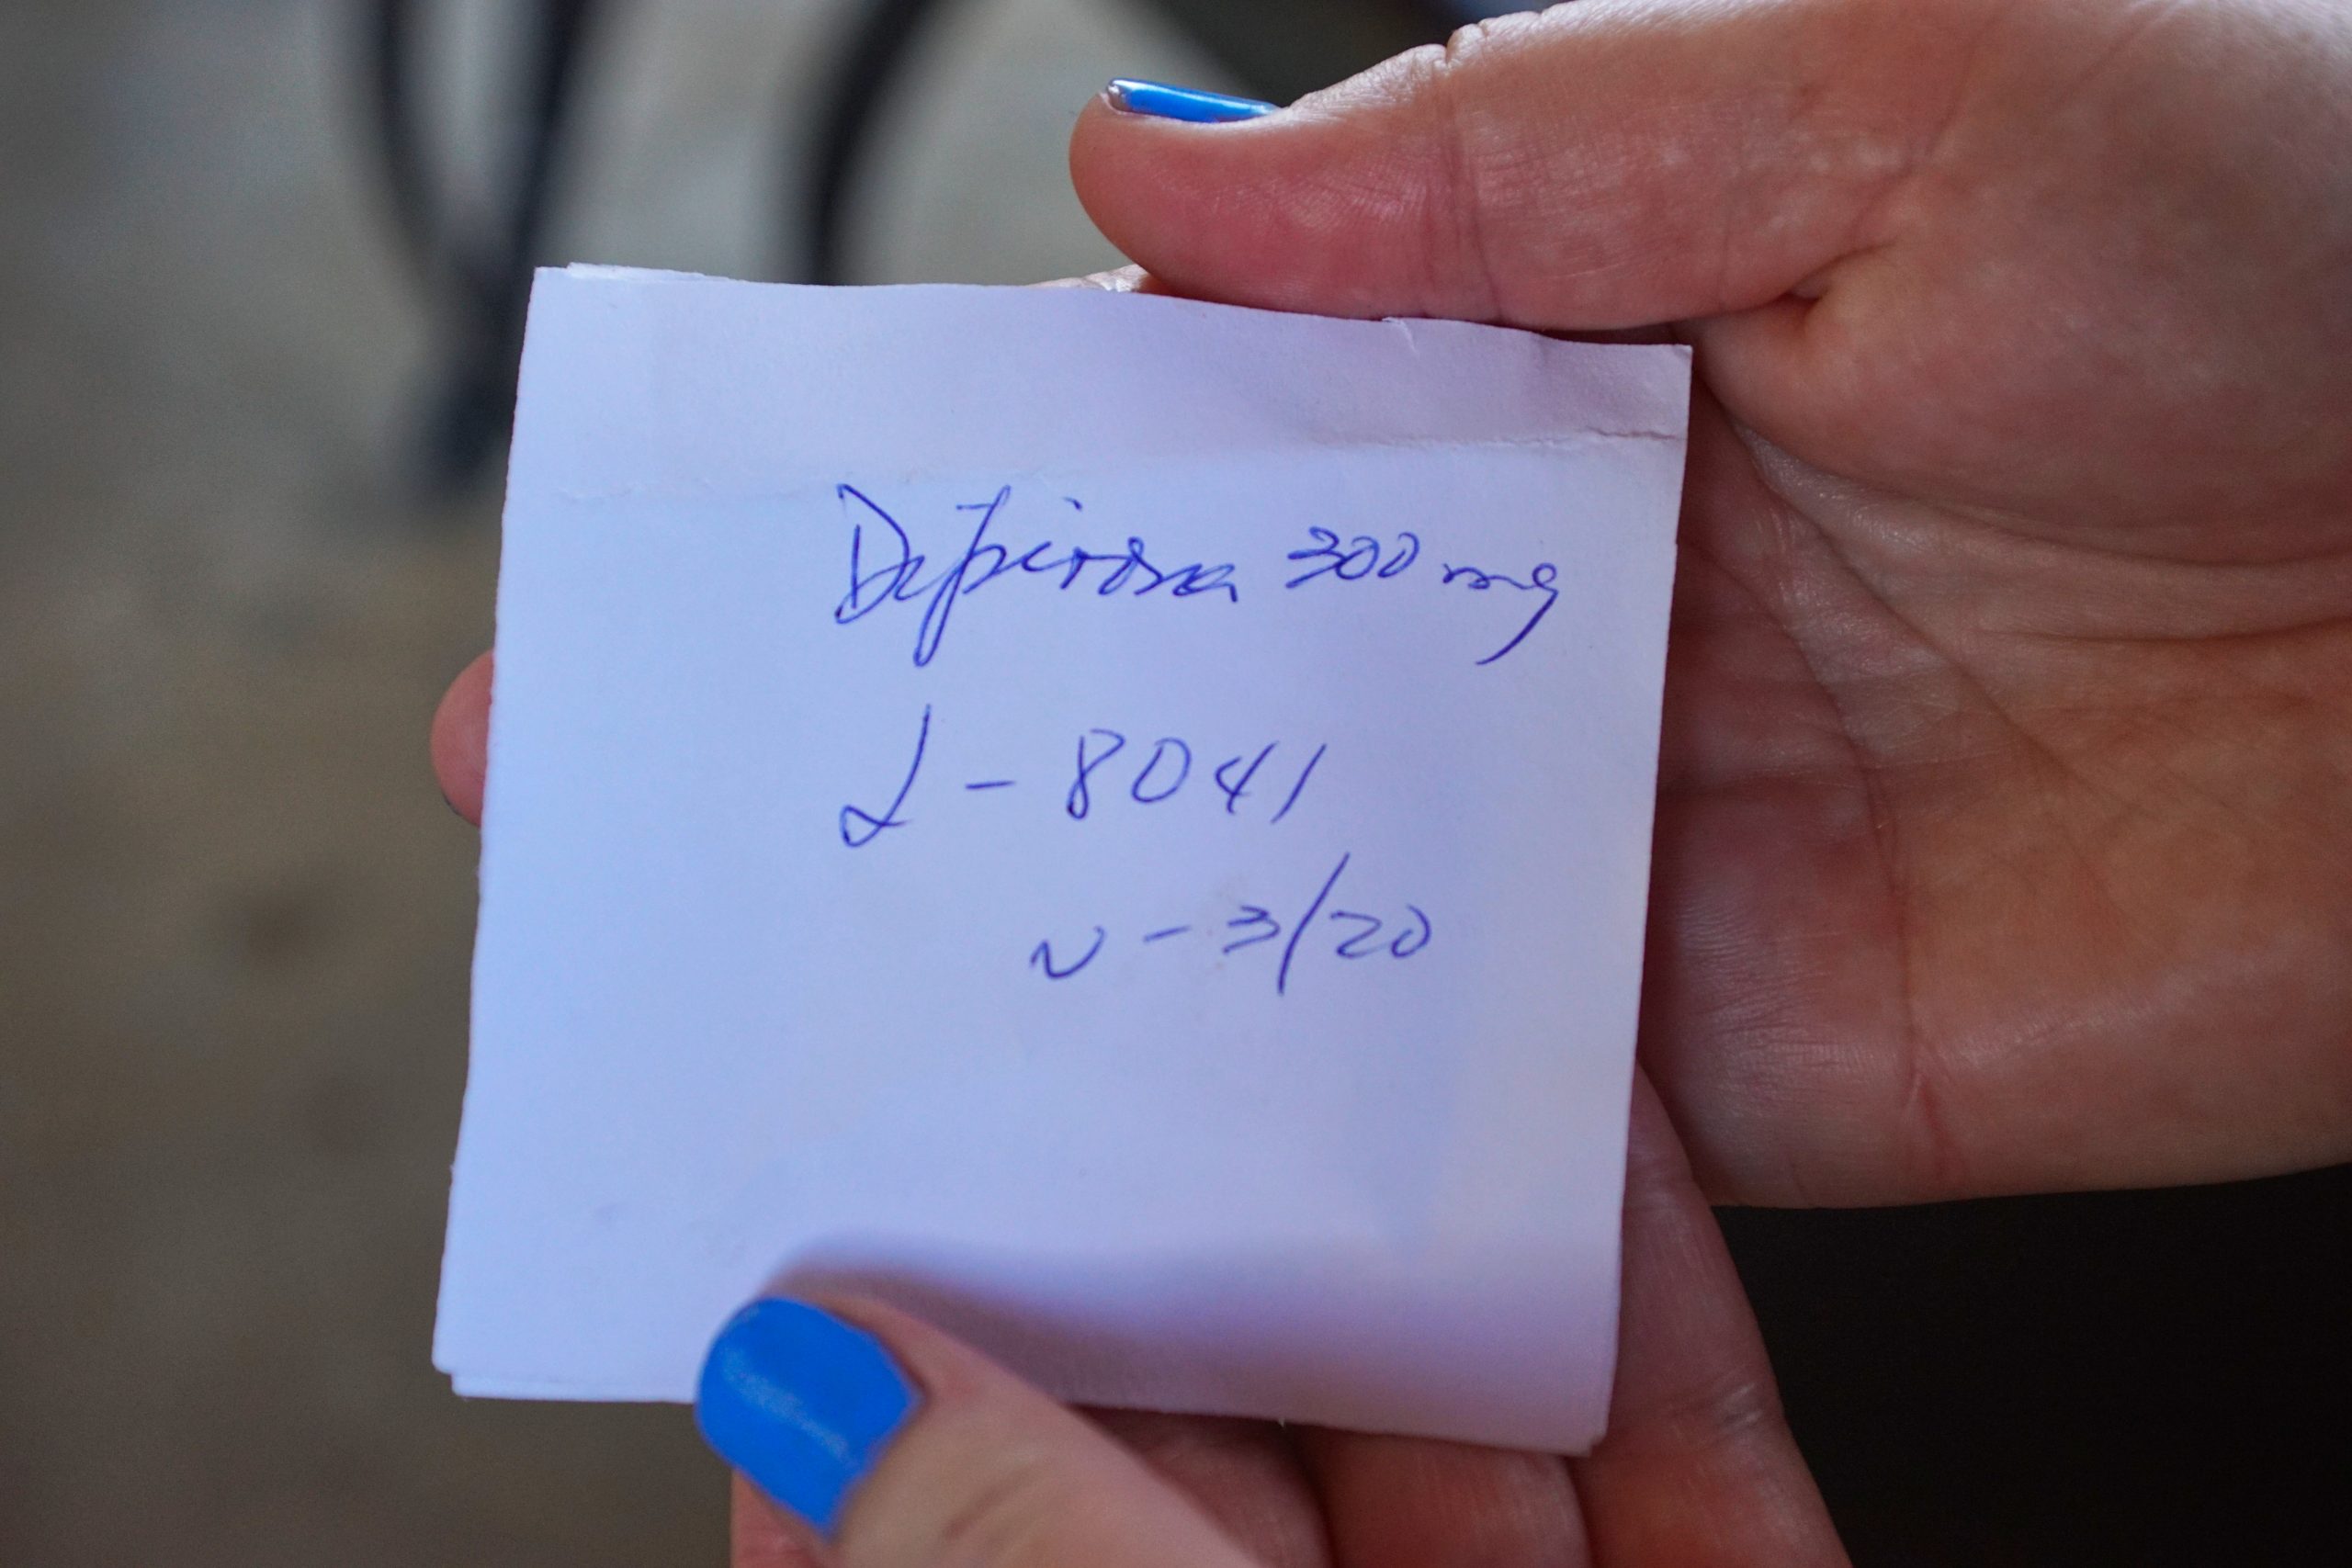 Dipirona 300 mg
L - 8041
v - 3/20